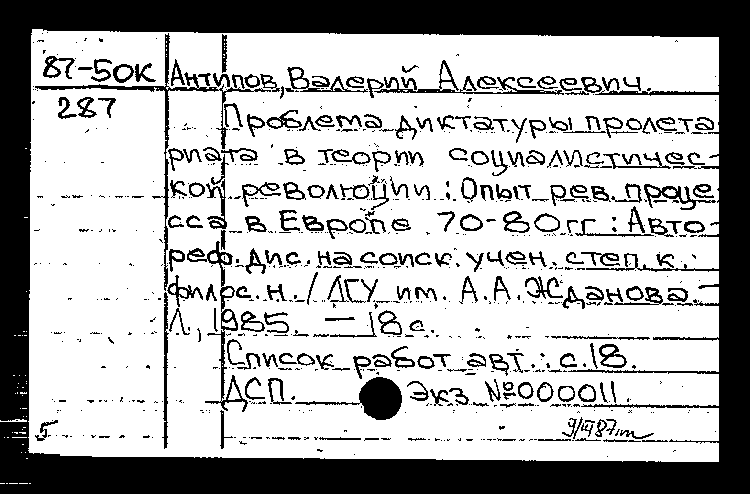 87-50К Антипов, Валерий Алексеевич.
287
Проблема диктатуры пролета-
риата в теории социалистичес-
кой революции : Опыт рев. проце-
сса в Европе 70-80 гг : Авто-
реф. дис. на соиск. учен. степ. к.
филос. н. / ЛГУ им. А.А. Жданова. -
Л., 1985. - 18 с.
Список работ авт.: с. 18.
ДСП. Экз №000011.
5